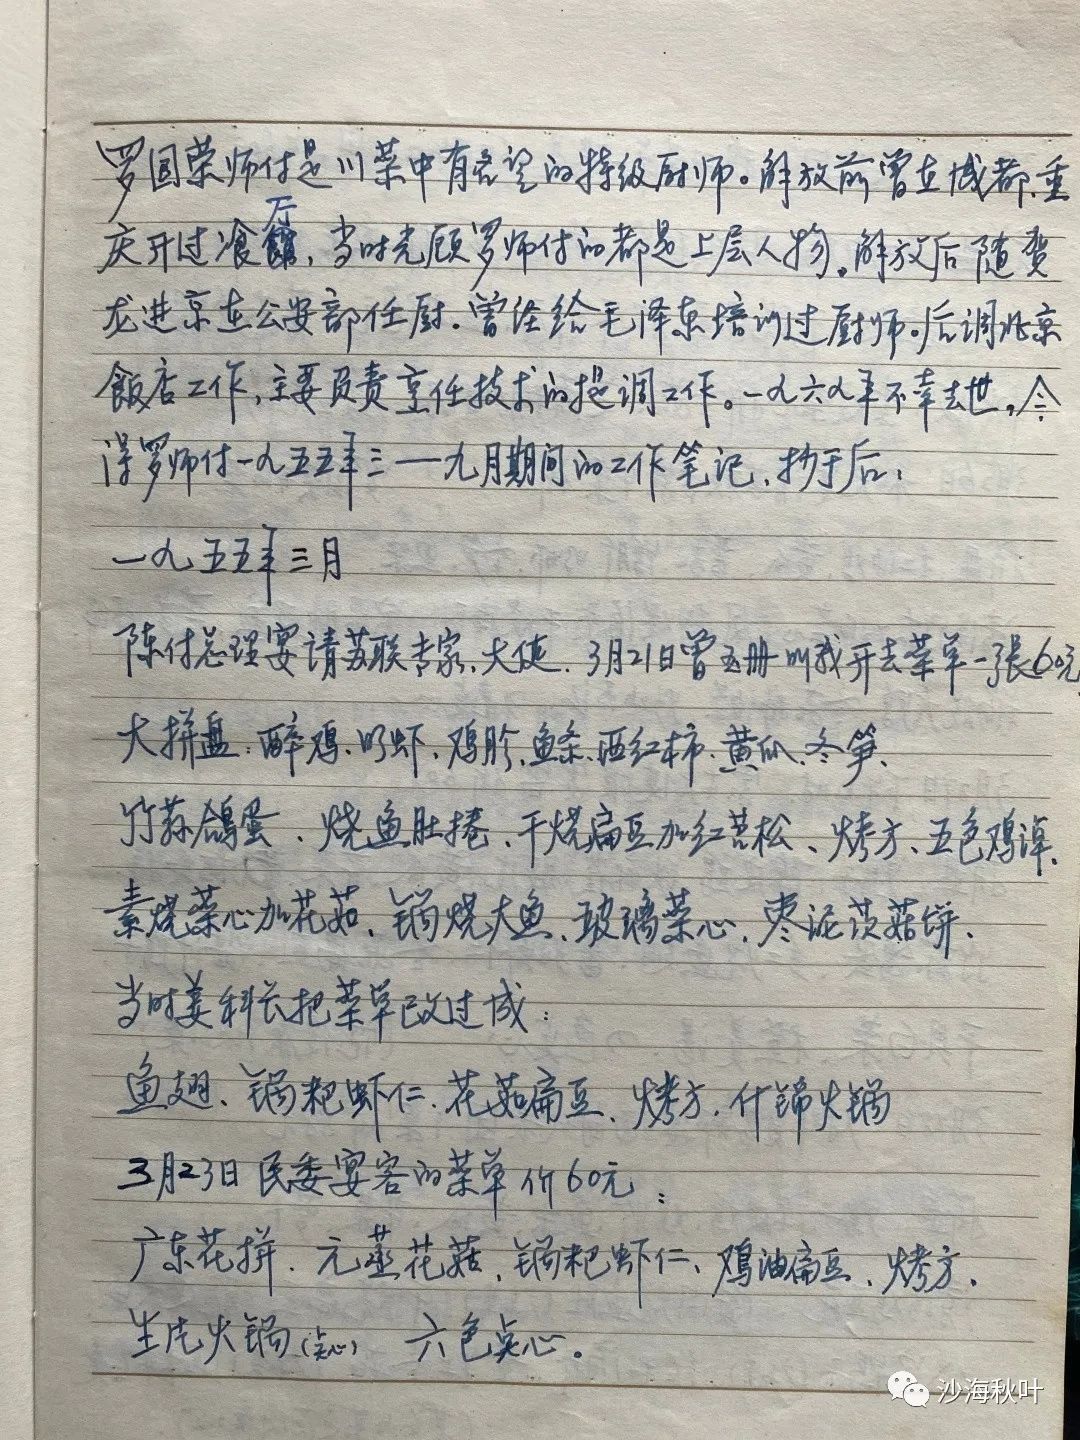 罗国荣师付是川菜中有名望的特级厨师。解放前曾在成都、重
庆开过飡厅,当时光顾罗师付的都是上层人物。解放后随贺
龙进京在公安部任厨.曾经给毛泽东培训过厨师。后调北京
飯店工作,主要负责烹任技术的提调工作。一九六九年不幸去世,今
得罗师付一九五五年三——九月期间的工作笔记、抄于后:
一九五五年三月
陈付总理宴请苏联专家、大使.3月21日曾玉册叫我开去菜单一张60元
大拼盘:醉鸡、明虾、鸡胗、鱼条、西红柿、黄瓜、冬笋、
竹荪鸽蛋、烧鱼肚捲、干烧扁豆加红苕松、烤方、五色鸡淖、
素烧菜心加花菇、锅烧大鱼、玻璃菜心、枣泥茨菇饼、
当时姜科长把菜单改过成:
鱼翅、锅粑虾仁、花菇扁豆、烤方、什锦火锅
3月23日民委宴客的菜单价60元:
广东花拼.元蒸花菇、锅粑虾仁、鸡油扁豆、烤方、
生片火锅(点心) 六色点心。
沙海秋叶